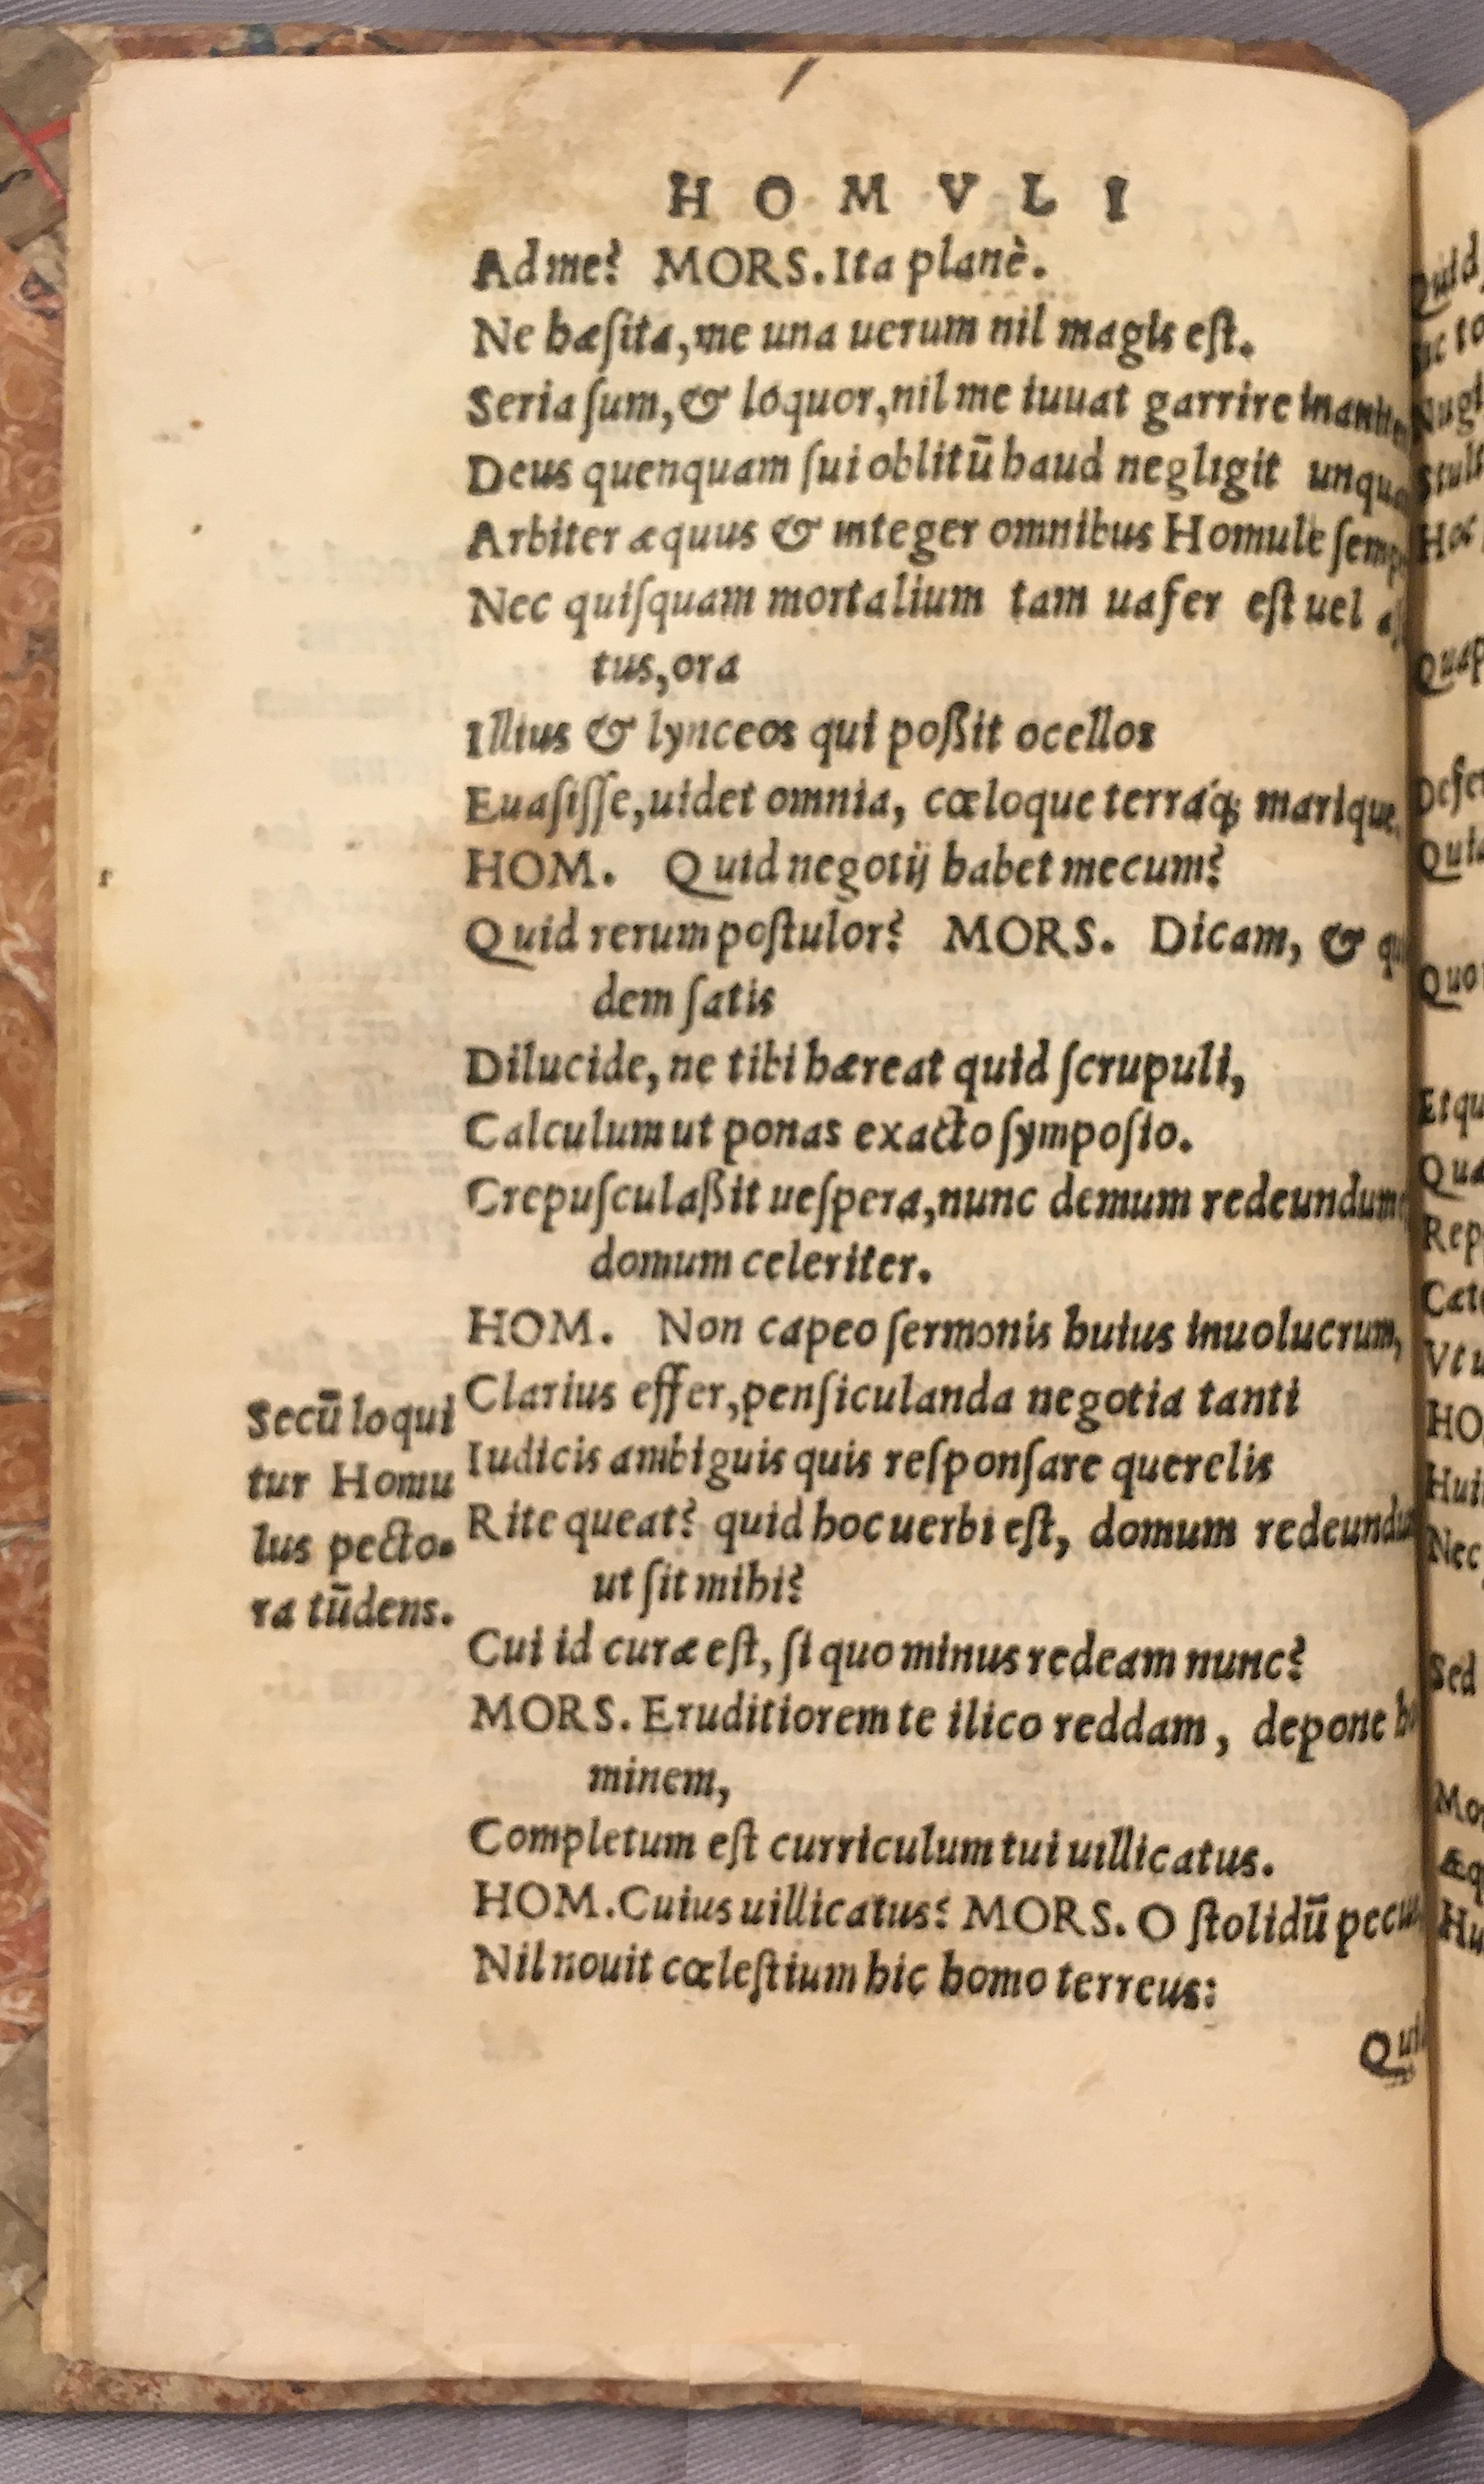 HOMVLI
Ad me? MORS. Ita planè.
Ne hæſita, me una uerum nil magis eſt.
Seria ſum, & loquor, nil me iuuat garrire
Deus quenquam ſui oblitū haud negligit
Arbiter æquus & integer omnibus Homule
Nec quiſquam mortalium tam uafer eſt uel
tus, ora
Illius & lynceos qui poßit ocellos
Euaſiſſe, uidet omnia, cœloque terráq; marique.
HOM. Quid negotij habet mecum?
Quid rerum poſtulor? MORS. Dicam, &
dem ſatis
Dilucide, ne tibi hæreat quid ſcrupuli,
Calculum ut ponas exacto ſympoſio.
Crepuſculaßit ueſpera, nunc demum
domum celeriter.
HOM. Non capeo ſermonis huius inuolucrum,
Clarius effer, penſiculanda negotia tanti
Iudicis ambiguis quis reſponſare querelis
Rite queat? quid hoc uerbi eſt, domum
ut ſit mihi?
Cui id curæ eſt, ſi quo minus redeam nunc?
MORS. Eruditiorem te ilico reddam, depone
minem,
Completum eſt curriculum tui uillicatus.
HOM. Cuius uillicatus? MORS. O ſtolidū
Nil nouit cœleſtium hic homo terreus:
Secū loqui
tur Homu
lus pecto-
ra tūdens.